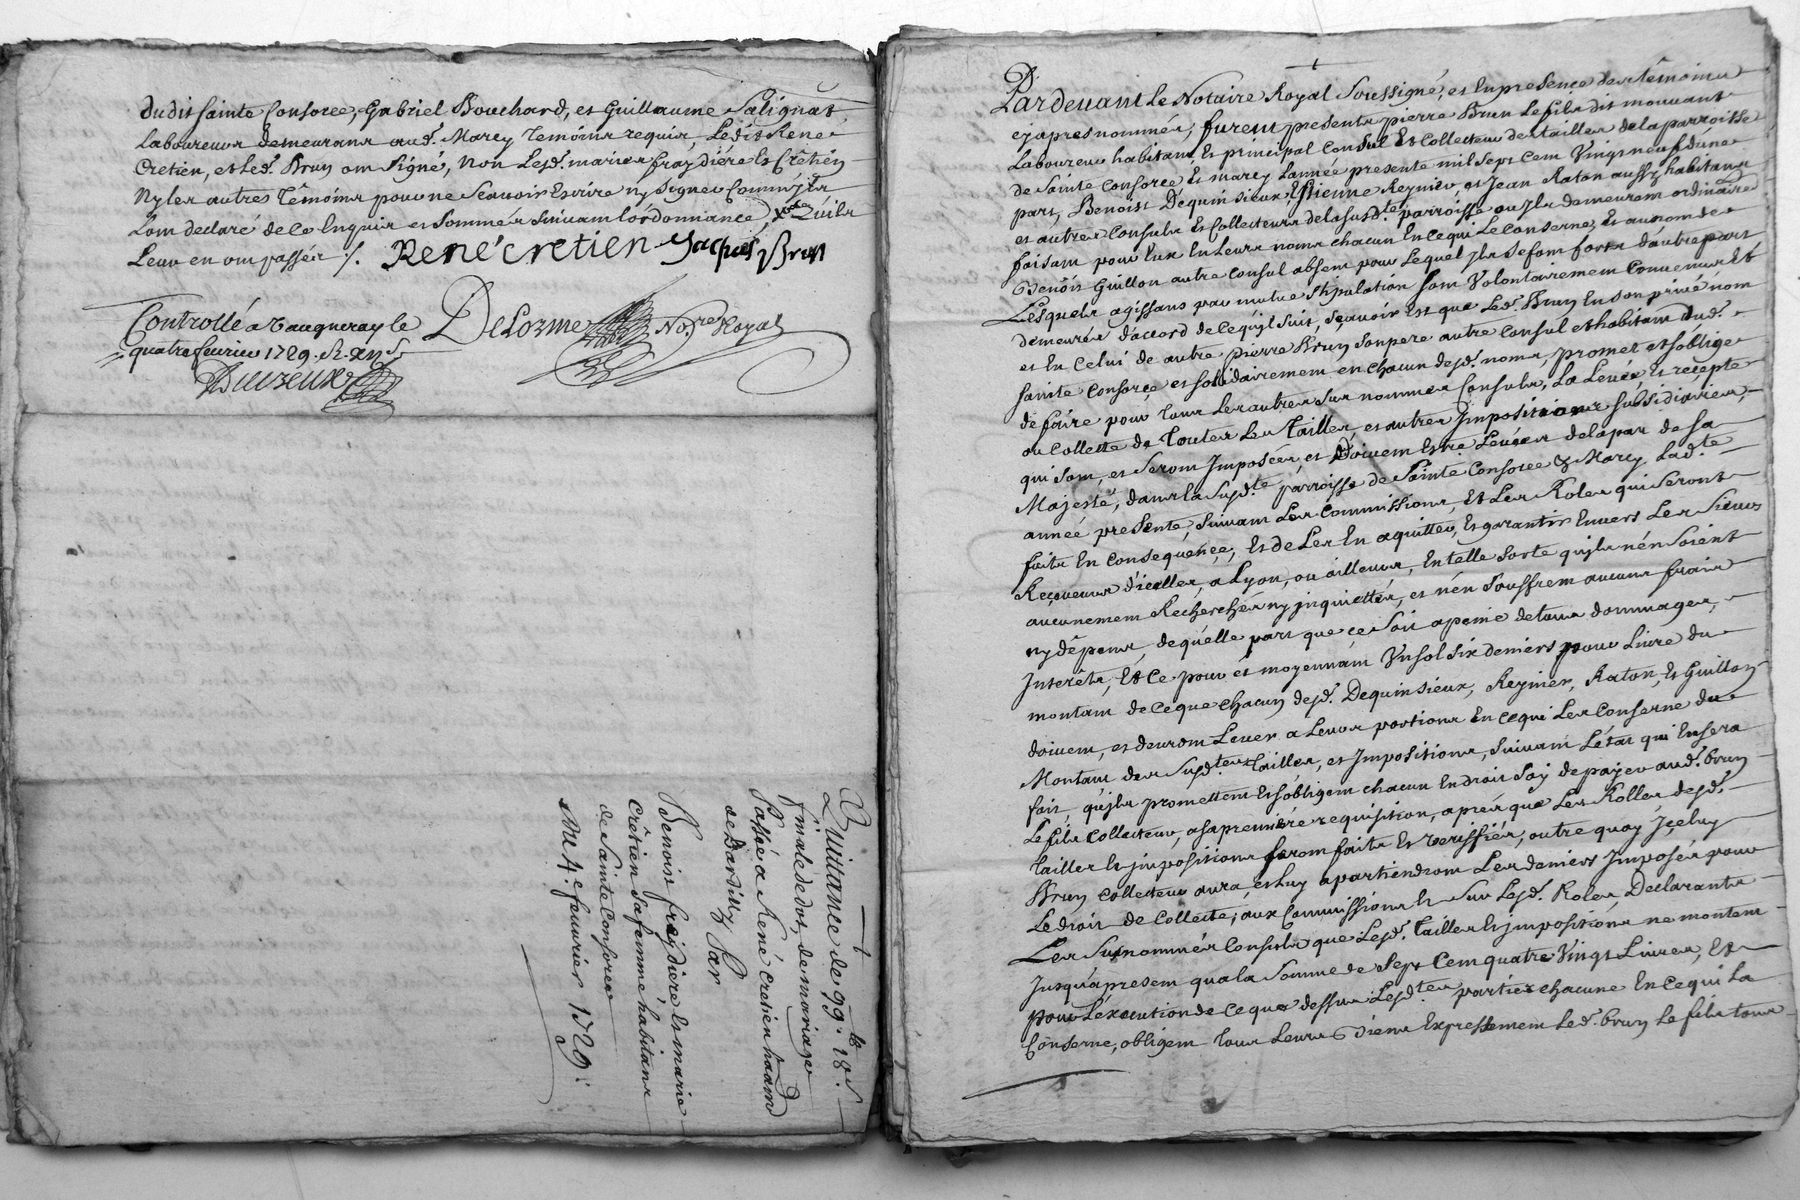 dudit sainte Consorce, Gabriel Bouchard, et Guillaume Salignat
laboureurs demeurans aud. Marcy temoins requis, Ledit René
Cretien, et Led. Brun ont signé, Non Lesd. mariés fraydiere Et Crêtien
Ny les autres têmoins pour ne sçavoir Escrire ny signer Comm'jls
L'ont declaré de ce Enquis et sommés suivant l'ordonnance, qu'ils
Leur en ont passés ./. René cretien Jacques Brun
Controllé a Vaugneray le
quatre fevrier 1729. R. xij s.
DeLorme No.re Royal
Quittance de 99 ll 18 s
finale de dot, de mariage
Passée a René Cretien
de Dardilly Par
Benoist fraydiere, Et marie
Crêtien sa femme habitans
de Sainte Consorce
Du 4.e feuvrier 1729.
Pardevant Le Notaire Royal Soussigné, et En presence des têmoins
cy apres nommés, furent presents pierre Brun Le fils dit mouvant
Laboureur habitant, Et principal Consul Et Collecteur des tailles de la parroisse
de Sainte Consorce Et marcy L'année presente mil sept cent Vingt neuf d'une
part, Benoist Dequinsieux Estienne Reynier, et Jean Raton aussy habitans
et autres Consuls Et Collecteurs de la susd.te parroisse ou jls demeurent ordinaire
faisant pour Eux En Leurs noms chacun En ce qui Le Conserne, Et au nom de
Benoist Guillon autre Consul absent pour Lequel jls se font forts d'autre part
Lesquels agissans par mutue stipulation sont Volontairement Convenus Et
demeurés d'accord de ce qu'jl suit, sçavoir Est que Led. Brun En son privé nom
et En Celui de autre pierre Brun son pere autre Consul et habitant dud.
Sainte Consorce et solidairement en chacun desd. noms, promet et s'oblige
de faire pour tous Les autres sus nommés Consuls, La Levée, Et recepte
ou Collecte de toutes Les tailles, et autres Jmpositions subsidiaires,
qui sont, et seront Jmposées, et doivent Estre Levées de la part de sa
Majesté, dans la susd.te parroisse de Sainte Consorce & Marcy Lad.te
année presente, suivant Les Commissions, Et Les Roles qui seront
faits En Consequence, Et de Les En aquitter, Et garantir Envers Les Sieurs
Reçeveurs d'jcelles, a Lyon, ou ailleurs, En telle sorte qu'jls n'en soient
aucunement Recherchés ny jnquiettés, et n'en souffrent aucuns frais
ny dêpens, de quelle part que ce soit a peine de tous dommages,
Jnterêts, Et Ce pour et moyennant Vn sol six deniers pour Livre du
montant de ce que chacun desd. Dequinsieux, Reynier, Raton, Et Guillon
doivent, et devront Lever a Leurs portions En ce qui Les Conserne du
Montant des susd.tes tailles, et Jmpositions, suivant L'état qui En sera
fait, qu'jls promettent Et s'obligent chacun En droit soy de payer aud. Brun
Le fils Collecteur, a sa premiére requisition, aprés que Les Rolles desd.
tailles Et jmpositions seront faits Et veriffiés, outre quoy Jceluy
Brun Collecteur aura, et Luy apartiendront Les deniers Jmposés pour
Le droit de Collecte, aux Commissions Et sur Lesd. Roles, Declarants
Les susnommés Consuls que Lesd. tailles Et jmpositions ne montent
Jusqu'a present qu'a la somme de sept Cent quatre Vingt Livres, Et
pour L'execution de ce que dessus Lesd.tes parties chacune En ce qui La
Conserne, obligent tous Leurs Biens Expressement Led. Brun Le fils tous